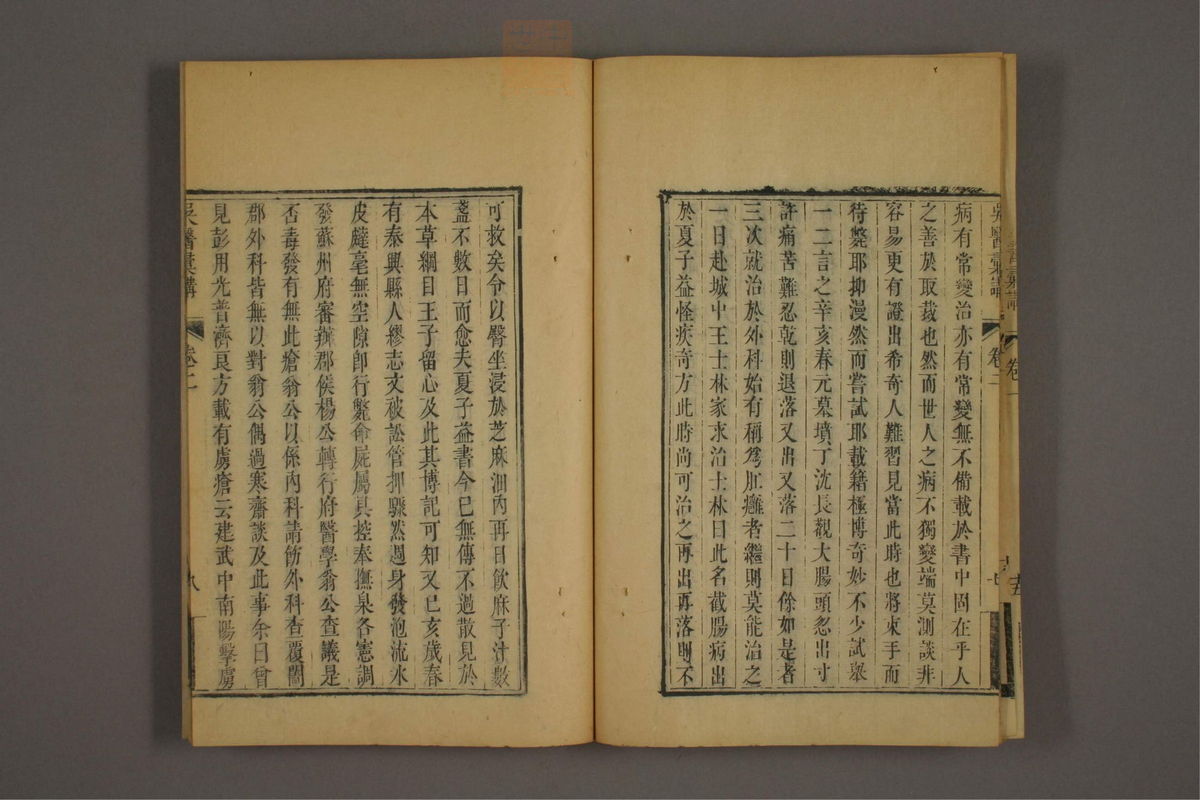 吳醫彙講
卷一
吳醫彙講
卷二
病有常變治亦有常變無不備載於書中固在乎人
之善於取裁也然而世人之病不獨變端莫測談非
容易更有證出希奇人難習見當此時也將束手而
待斃耶抑漫然而嘗試耶載籍極博奇妙不少試舉
一二言之辛亥春元墓墳丁沈長觀大腸頭忽出寸
許痛苦難忍乾則退落又出又落二十日餘如是者
三次就治於外科始有稱爲肛癰者繼則莫能治之
一日赴城中王士林家求治士林曰此名截腸病出
於夏子益怪疾奇方此時尚可治之再出再落則不
可救矣令以臀坐浸於芝麻油內再日飲麻子汁數
盞不數日而愈夫夏子益書今已無傳不過散見於
本草綱目王子留心及此其博記可知又已亥歲春
有泰興縣人繆志文被訟管押驟然遇身發泡流水
皮皻毫無空隙卽行斃命屍屬具控奉撫臬各憲調
發蘇州府審辦郡侯楊公轉行府醫學翁公查議是
否毒發有無此瘡翁公以係內科請飭外科查覆闔
郡外科皆無以對翁公偶過寒齋談及此事余曰曾
見彭用光普濟良方載有虜瘡云建武中南陽擊虜
吳醫彙講
卷二
八